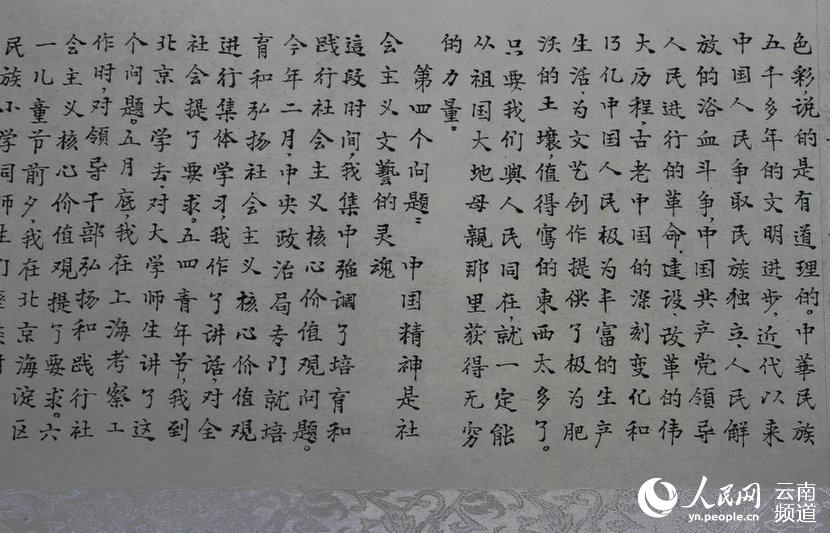 色彩,说的是有道理的。中華民族
五千多年的文明進步,近代以来
中国人民争取民族独立、人民解
放的浴血斗争,中国共产党領导
人民進行的革命、建设、改革的伟
大历程,古老中国的深刻变化和
13亿中国人民极为丰富的生产
生活,为文艺創作提供了极为肥
沃的土壤,值得寫的東西太多了。
只要我们與人民同在,就一定能
从祖国大地母親那里获得无穷
的力量。
第四个问題:中国精神是社
会主义文藝的灵魂
這段时间,我集中強調了培育和
践行社会主义核心价值觀问題。
今年二月,中央政治局专门就培
育和弘扬社会主义核心价值觀
進行集体学习,我作了讲话,对全
社会提了要求。五四青年节,我到
北京大学去,对大学師生讲了这
个问題。五月底,我在上海考察工
作时,对领导干部弘扬和践行社
会主义核心价值觀提了要求。六
一儿童节前夕,我在北京海淀区
民族小学
人民网 云南频道
yn.people.cn